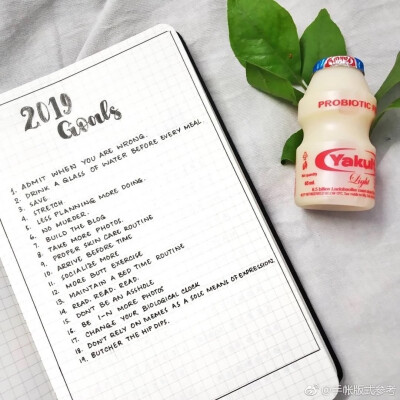 2019
Goals
1. ADMIT WHEN YOU ARE WRONG.
2. DRINK A GLASS OF WATER BEFORE EVERY MEAL
3. SAVE.
4. STRETCH
5. LESS PLANNING MORE DOING.
6. NO MURDER.
7. BUILD THE BLOG
8. TAKE MORE PHOTOS.
9. PROPER SKIN CARE ROUTINE
10. ARRIVE BEFORE TIME
11. SOCIALIZE MORE
12. MORE BUTT EXERCISE
13. MAINTAIN A BED TIME ROUTINE
14. READ. READ. READ.
15. DONT BE AN ASSHOLE
16. BE I-N MORE PHOTOS
17. CHANGE YOUR BIOLOGICAL CLOCK
18. DONT RELY ON MEMES AS A SOLE MEANS OF EXPRESSION.
19. BUTCHER THE HIP DIPS.
PROBIOTIC
Yakult
Light
@手帐版式参考